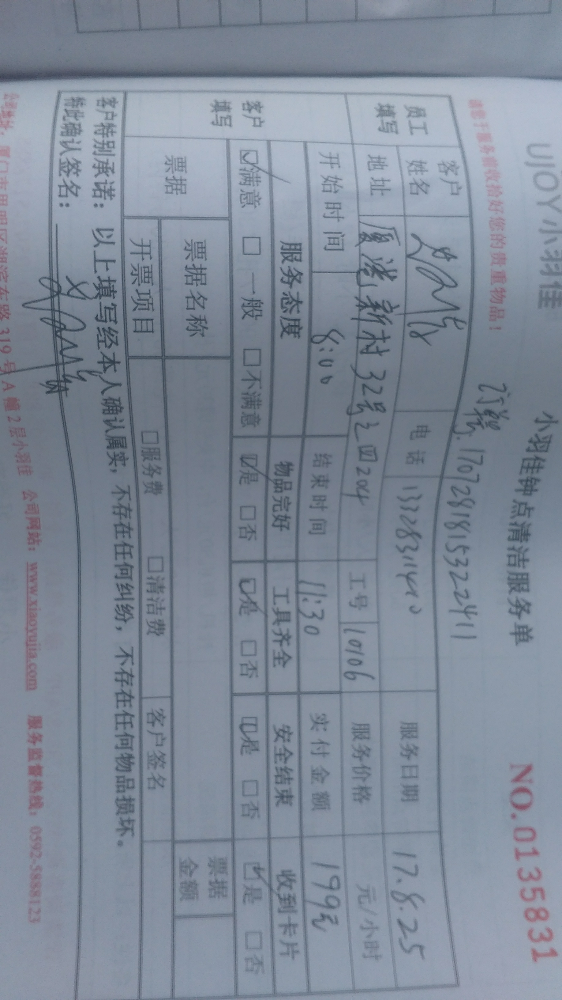 UJOY小羽佳
小羽佳钟点清洁服务单
NO.0135831
请您于服务前收拾好您的贵重物品！
1707281815322411
员工填写
客户姓名
电话
服务日期 17.8.25
地址 厦港新村32号之四204
工号 10106
服务价格 元/小时
开始时间 8:00
结束时间 11:30
实付金额 199元
客户填写
服务态度 物品完好 工具齐全 安全结束 收到卡片
☑满意 □一般 □不满意 ☑是 □否 ☑是 □否 ☑是 □否 ☑是 □否
票据
票据名称
票据金额
开票项目 □服务费 □清洁费 客户签名
客户特别承诺：以上填写经本人确认属实，不存在任何纠纷，不存在任何物品损坏。
特此确认签名：
319号A幢2层小羽佳 公司网站：www.xiaoyujia.com 服务监督热线：0592-5888123